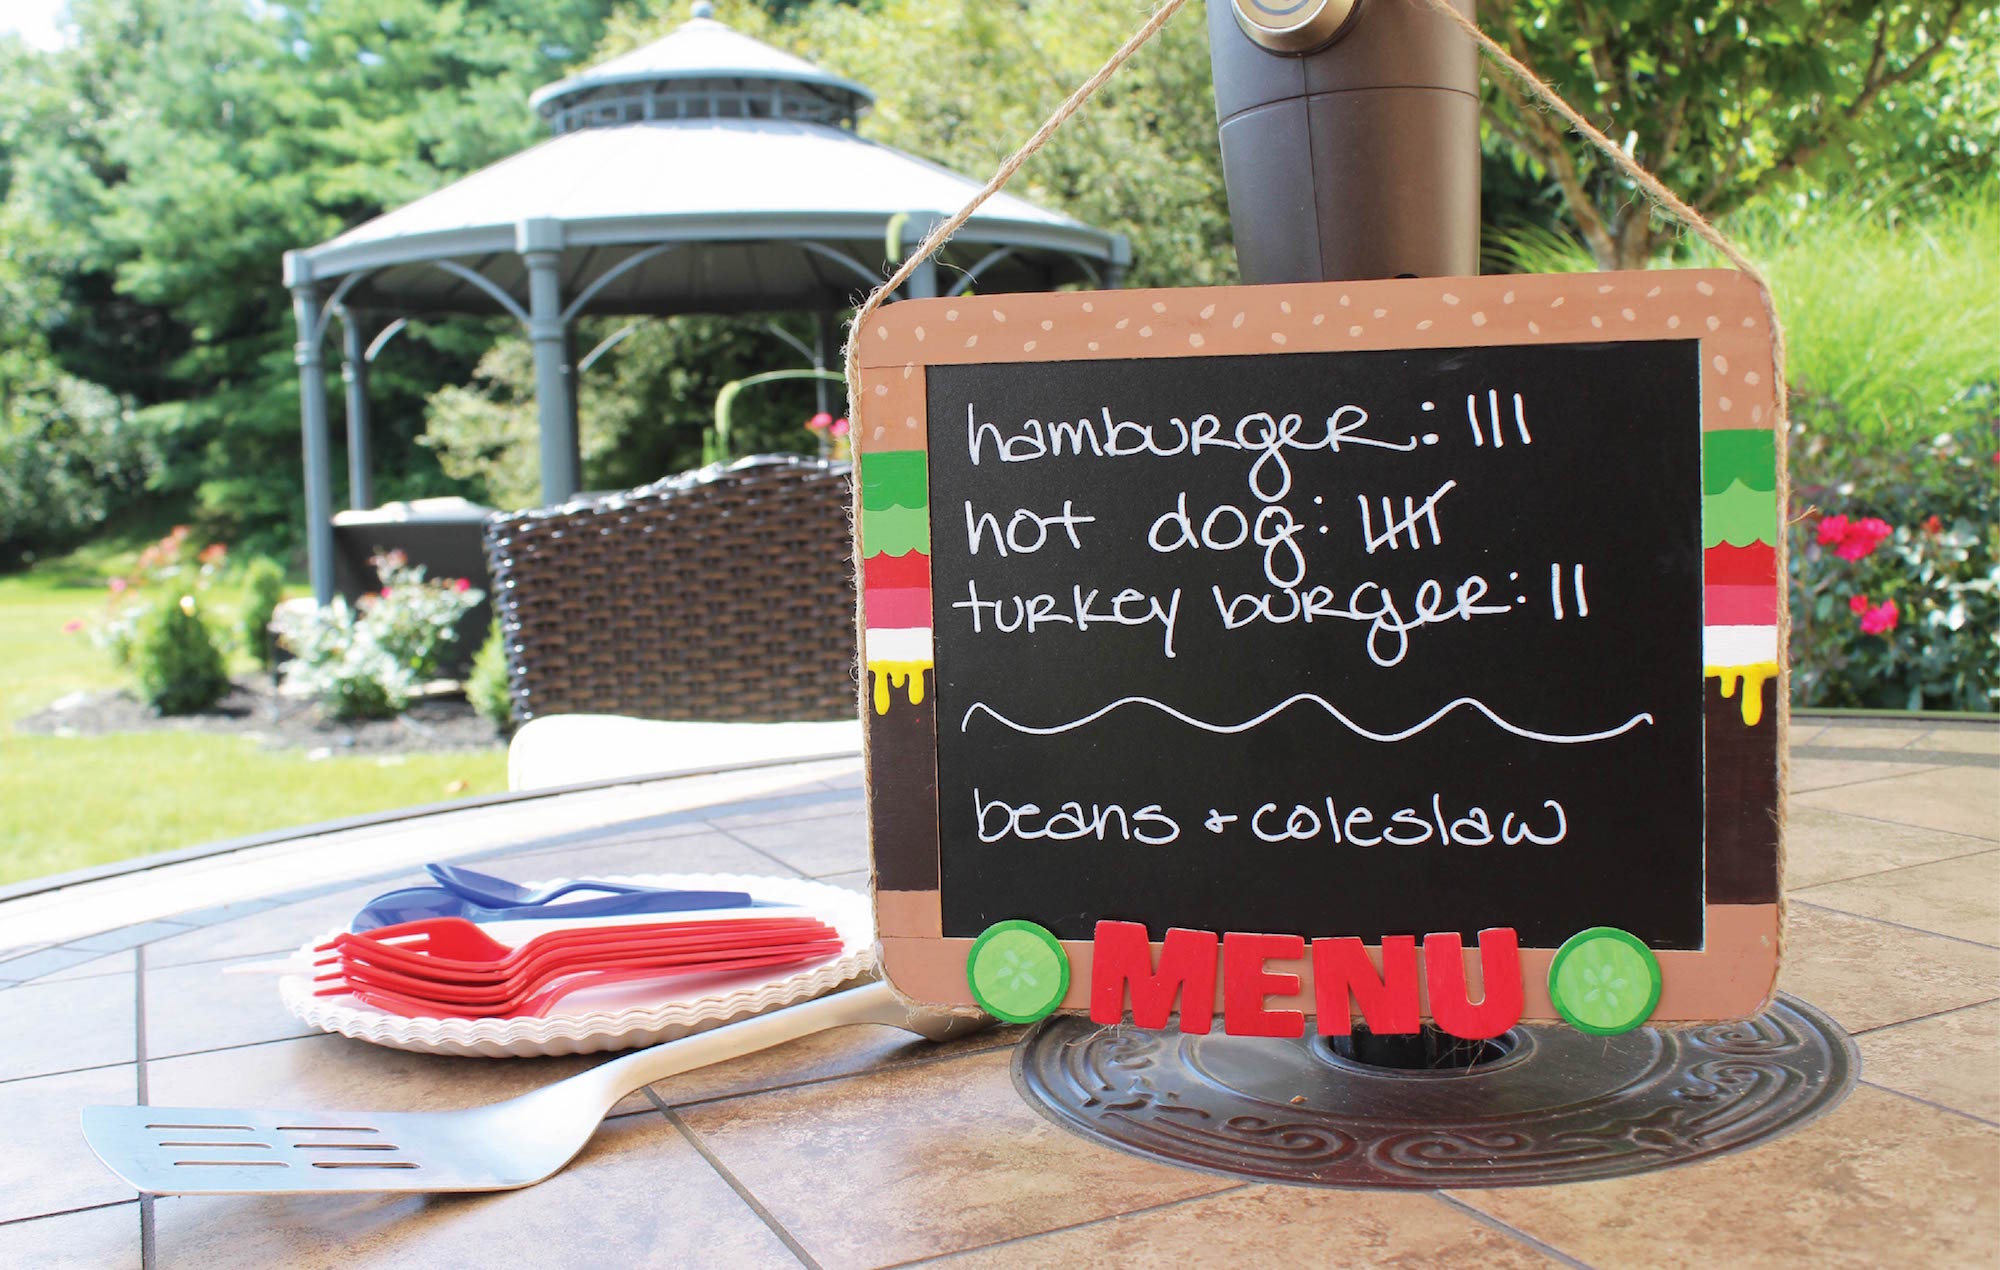 hamburger: |||
hot dog: 卌
turkey burger: ||
beans + coleslaw
MENU